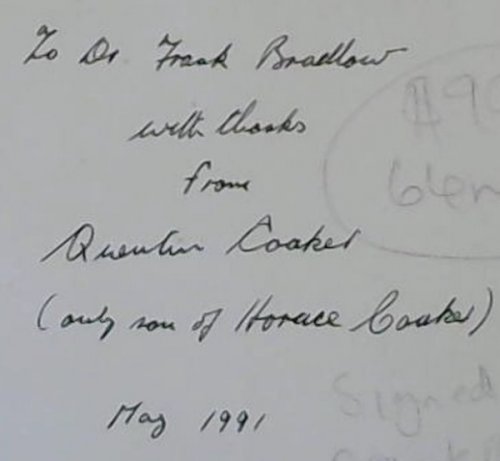 To Dr Frank Bradlow
with thanks
from
Quentin Coaker
(only son of Horace Coaker)
May 1991
Signed